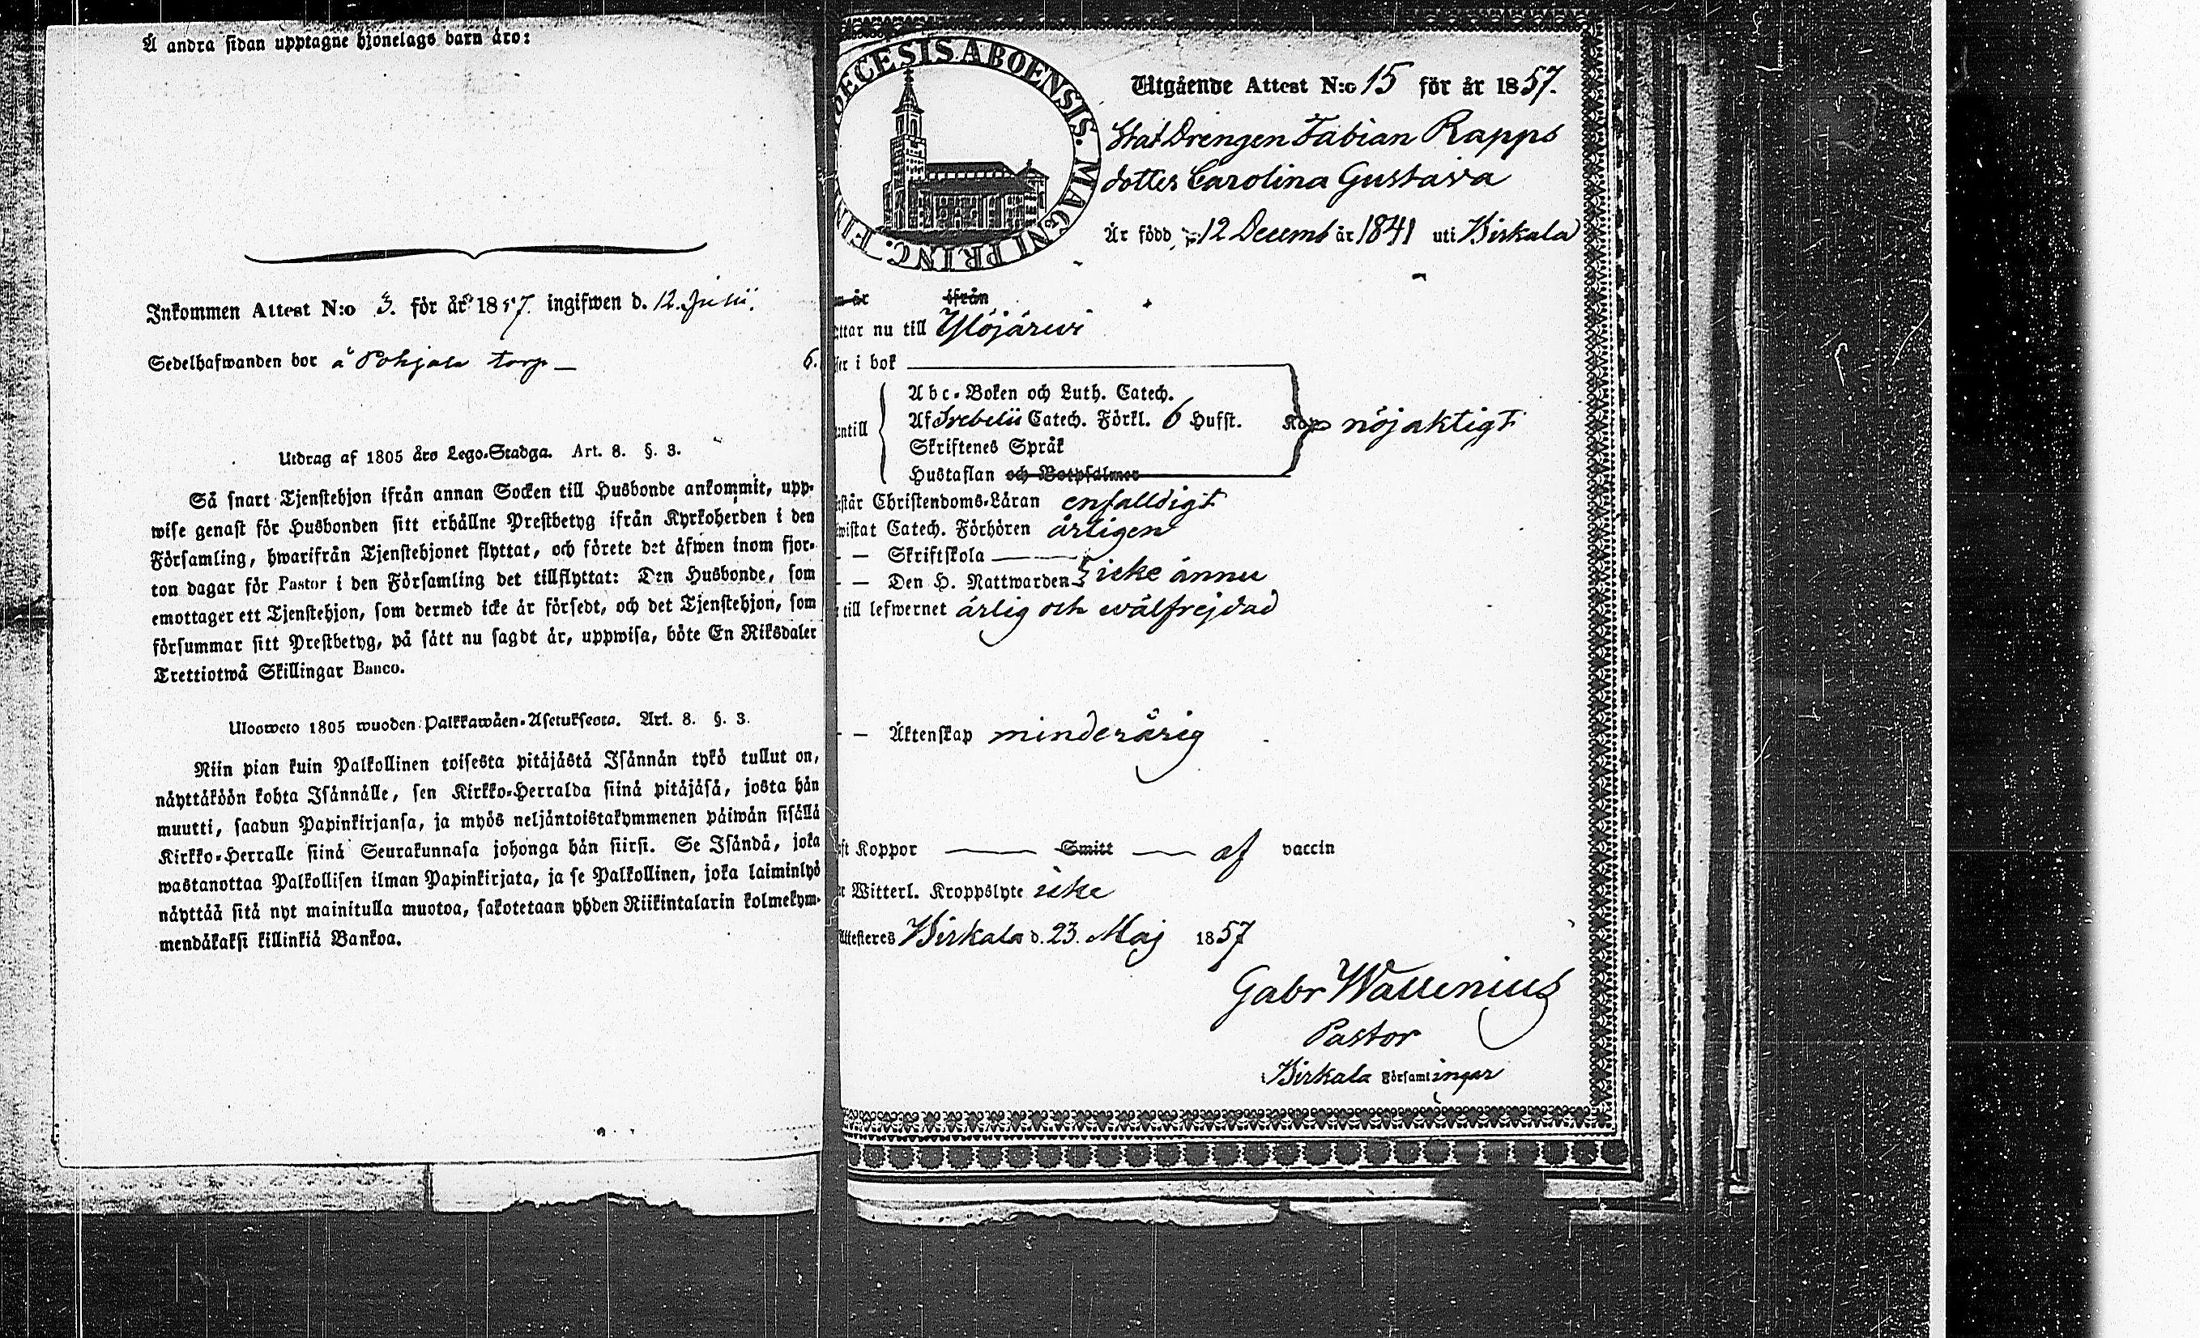 Å andra sidan upptagne hjonelags barn äro:
Inkommen Attest N:o 3. för år 1857. ingifwen d. 12 Julii.
Sedelhafwanden bor å Pohjala torp
6.
Utdrag af 1805 års Lego-Stadga. Art. 8. §. 3.
Så snart Tjenstehjon ifrån annan Socken till Husbonde ankommit, upp-
wise genast för Husbonden sitt erhållne Prestbetyg ifrån Kyrkoherden i den
Församling, hwarifrån Tjenstehjonet flyttat, och förete det äfwen inom fjor-
ton dagar för Pastor i den Församling det tillflyttat: Den Husbonde, som
emottager ett Tjenstehjon, som dermed icke är försedt, och det Tjenstehjon, som
försummar sitt Prestbetyg, på sätt nu sagdt är, uppwisa, böte En Riksdaler
Trettiotwå Skillingar Banco.
Ulosweto 1805 wuoden Palkkawäen-Asetuksesta. Art. 8. §. 3.
Niin pian kuin Palkollinen toisesta pitäjästä Isännän tykö tullut on,
näyttäköön kohta Isännälle, sen Kirkko-Herralda siinä pitäjäsä, josta hän
muutti, saadun Papinkirjansa, ja myös neljäntoistakymmenen päiwän sisällä
Kirkko-Herralle siinä Seurakunnasa johonga hän siirsi. Se Isändä, joka
wastanottaa Palkollisen ilman Papinkirjata, ja se Palkollinen, joka laiminlyö
näyttää sitä nyt mainitulla muotoa, sakotetaan yhden Riikintalarin kolmekym-
mendäkaksi killinkiä Bankoa.
DIOECESIS ABOENSIS. MAGNI PRINC. FIN
Utgående Attest N:o 15 för år 1857.
Stat Drengen Fabian Rapps
dotter Carolina Gustava
Är född 12 Decemb år 1841 uti Birkala
n år ifrån
ttar nu till Ylöjärvi
er i bok
Abc-Boken och Luth. Catech.
Af Svebelii Catech. Förkl. 6 Hufst.
ntill nöjaktigt
Skriftenes Språk
Hustaflan och Botpsalmer
står Christendoms-Läran enfalldigt
wistat Catech. Förhören årligen
— Skriftskola
— Den H. Nattwarden icke ännu
till lefwernet ärlig och wälfrejdad
— Äktenskap minderårig
ft Koppor Smitt af vaccin
r Witterl. Kroppslyte icke
Attesteres Birkala d. 23. Maj 1857
Gabr Wallenius
Pastor
i Birkala Församlingar